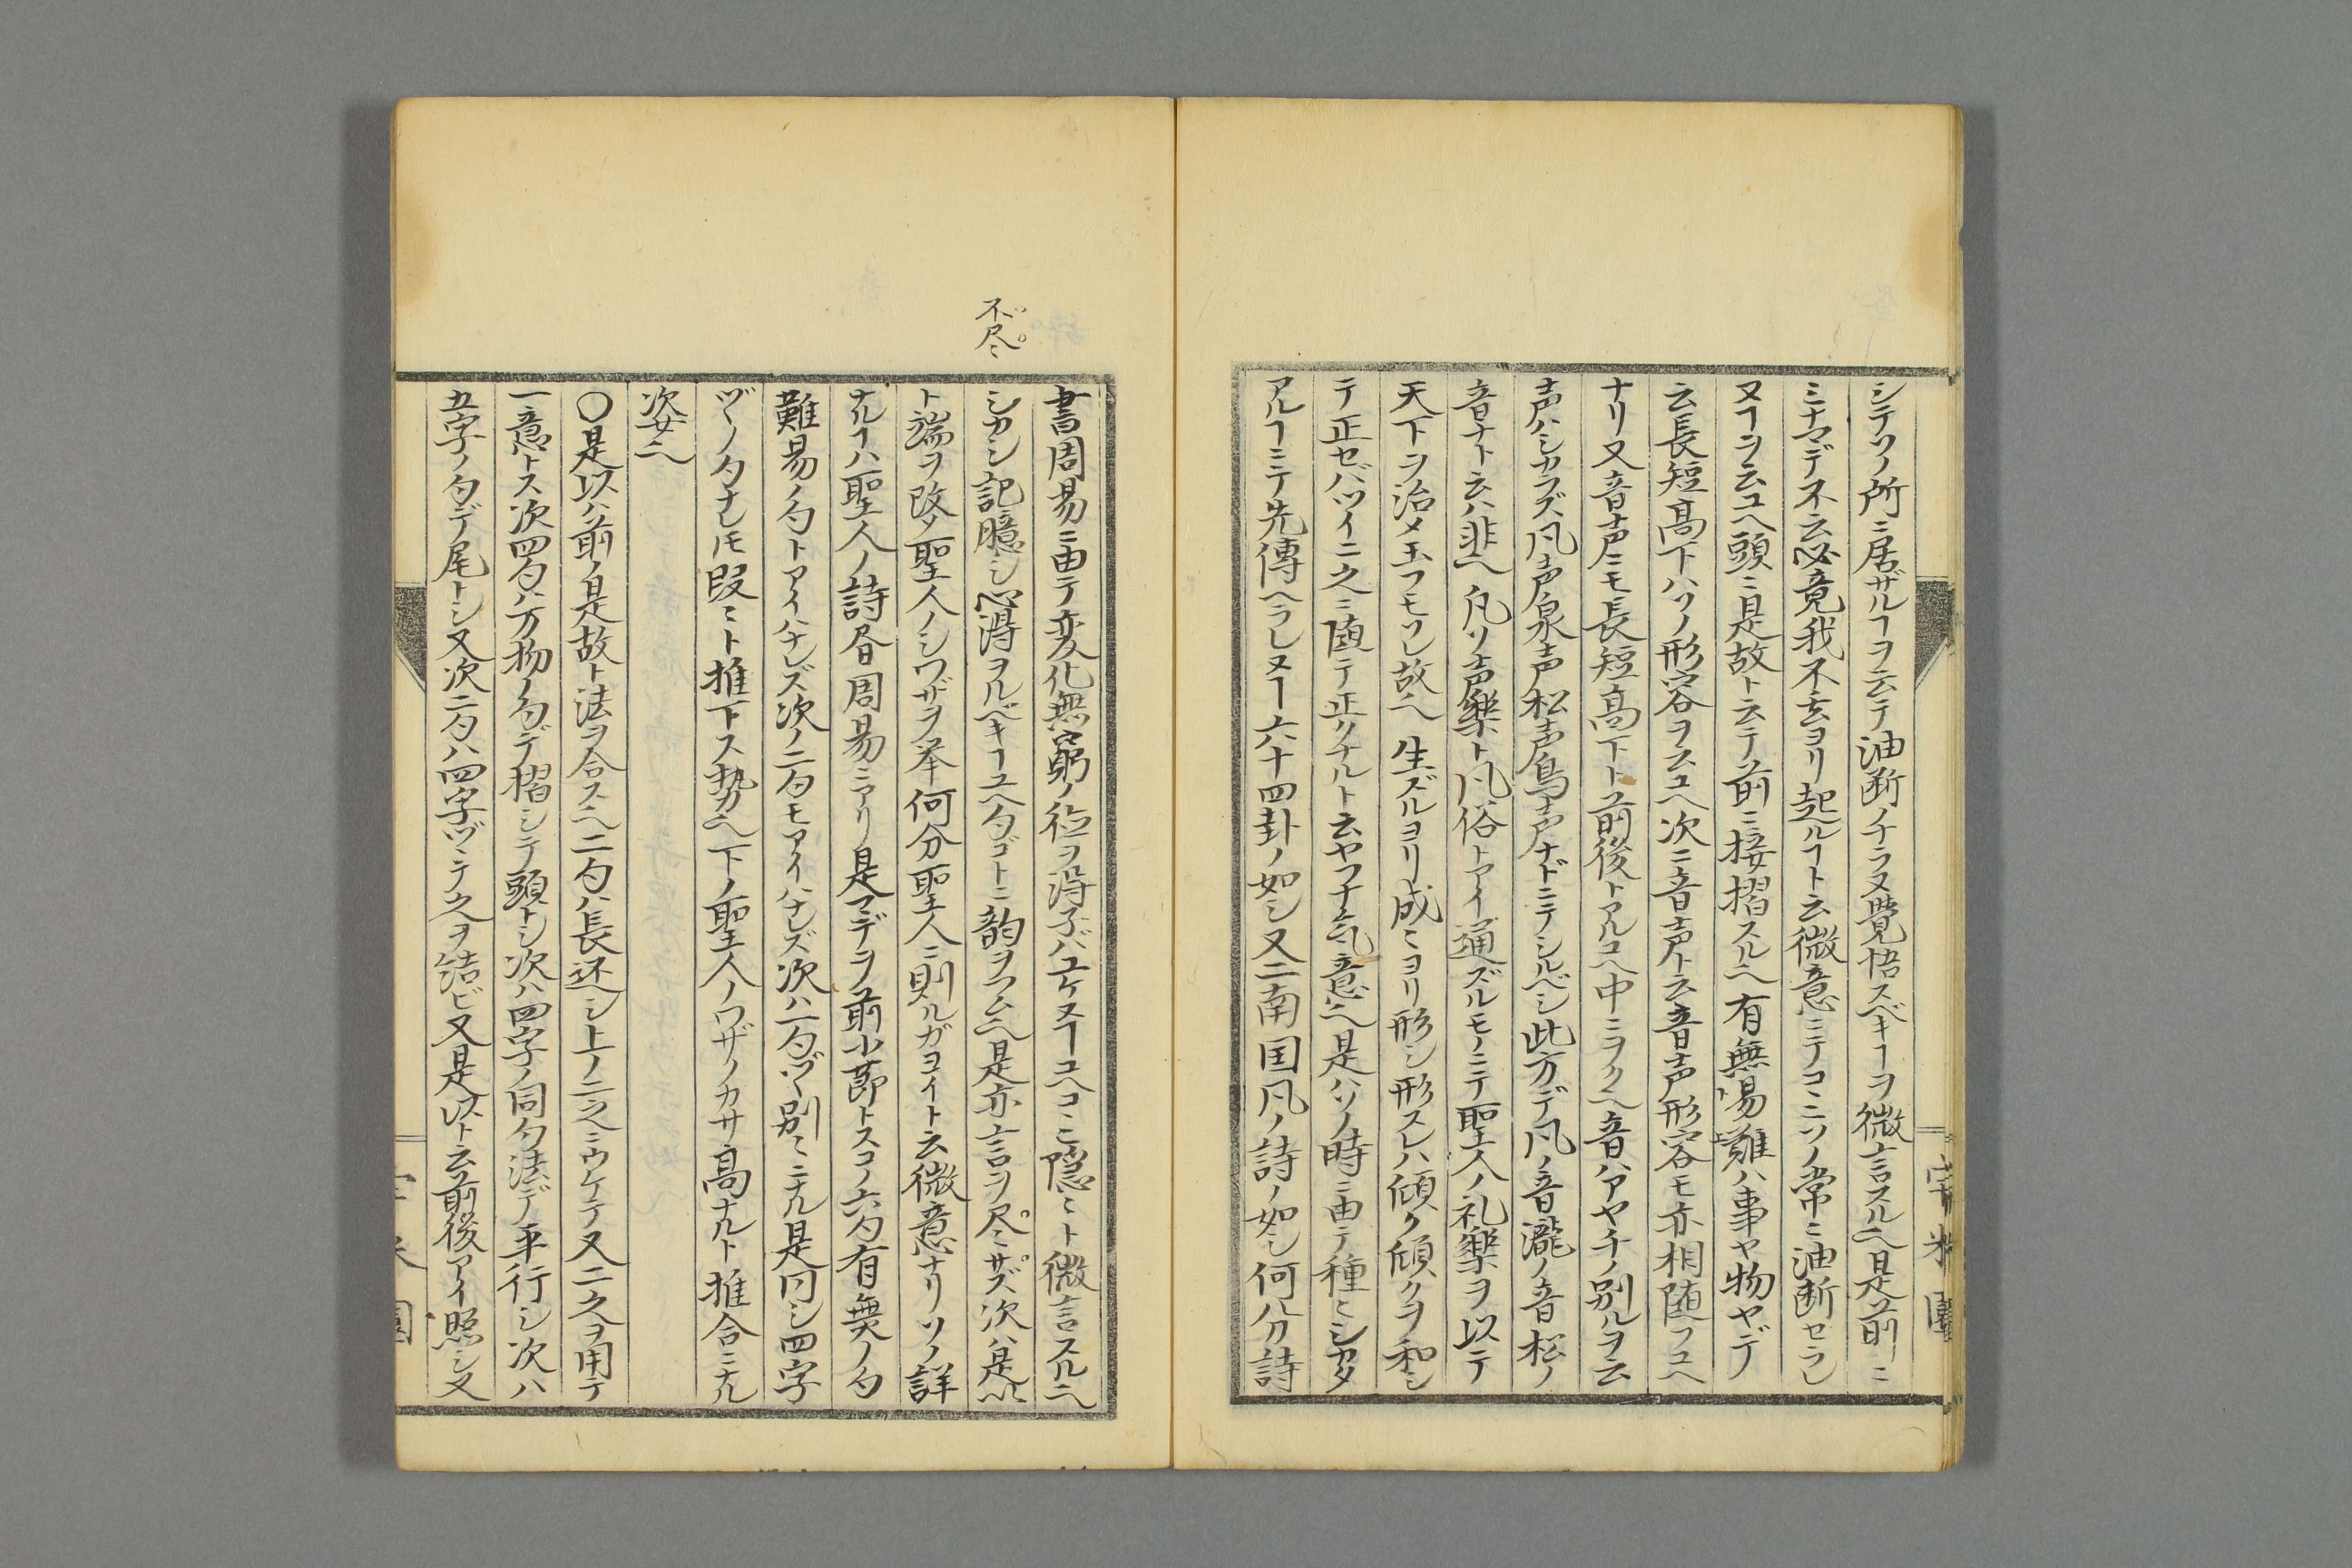 シテソノ所ニ居ザルヿヲ云テ油断ノナラヌ覺悟スベキヿヲ微言スル也是前ニ
ミナマデ不云必竟我不玄ヨリ起ルヿト云微意ニテコヽニソノ常ニ油断セラレ
ヌヿヲ云ユヘ頭ニ是故ト云テ前ニ接摺スル也有無ト易難ハ事ヤ物ヤデ
云長短高下ハソノ形容ヲ云ユヘ次ニ音声ト云音声形容モ亦相随フユヘ
ナリ又音声ニモ長短高下ト前後トアルユヘ中ニヲク也音ハアヤチノ別ルヲ云
声ハシカラズ凡声泉声松声鳥声ナドニテシルベシ此方デ凡ノ音瀧ノ音松ノ
音ナト云ハ非也凡ソ声樂ト凡俗トアイ通ズルモノニテ聖人ノ礼樂ヲ以テ
天下ヲ治メ玉フモソレ故也生ズルヨリ成ニヨリ形シ形スレハ傾ク傾クヲ和シ
テ正セバツイニ之ニ随テ正クナルト云ヤフナ気意也是ハソノ時ニ由テ種ミシカタ
アルヿニテ先傳ヘラレヌヿ六十四卦ノ如シ又二南国凡ノ詩ノ如シ何分詩
不尽ミ
書周易ニ由テ変化無窮ノ径ヲ得子バユケヌヿユヘコヽニ隠ミト微言スル也
シカシ記臆シ心得ヲルベキヿユヘ勺ゴトニ韵ヲフム也是亦言ヲ尽ミサズ次ハ是以
ト端ヲ改メ聖人ノシワザヲ挙何分聖人ニ則ルガヨイト云微意ナリソノ詳
ナルヿハ聖人ノ詩昏周易ニアリ是マデヲ前小莭トスコノ六勺有無ノ勺
難易ノ勺トアイハナレズ次ノ二勺モアイハナレズ次ハ一勺ヅヽ別ミニナル是同シ四字
ヅヽノ勺ナレ𪜈段ミト推下ス勢也下ノ聖人ノワザノカサ高ナルト推合ニナル
次女也
〇是以ハ前ノ是故ト法ヲ合ス也二勺ハ長还シ上ノ二之ニウケテ又二之ヲ用テ
一意トス次四勺ハ万物ノ勺デ摺シテ頭トシ次ハ四字ノ同勺法デ平行シ次ハ
五字ノ勺デ尾トシ又次二勺ハ四字ヅヽニテ之ヲ結ビ又是以ト云前後アイ照シ又